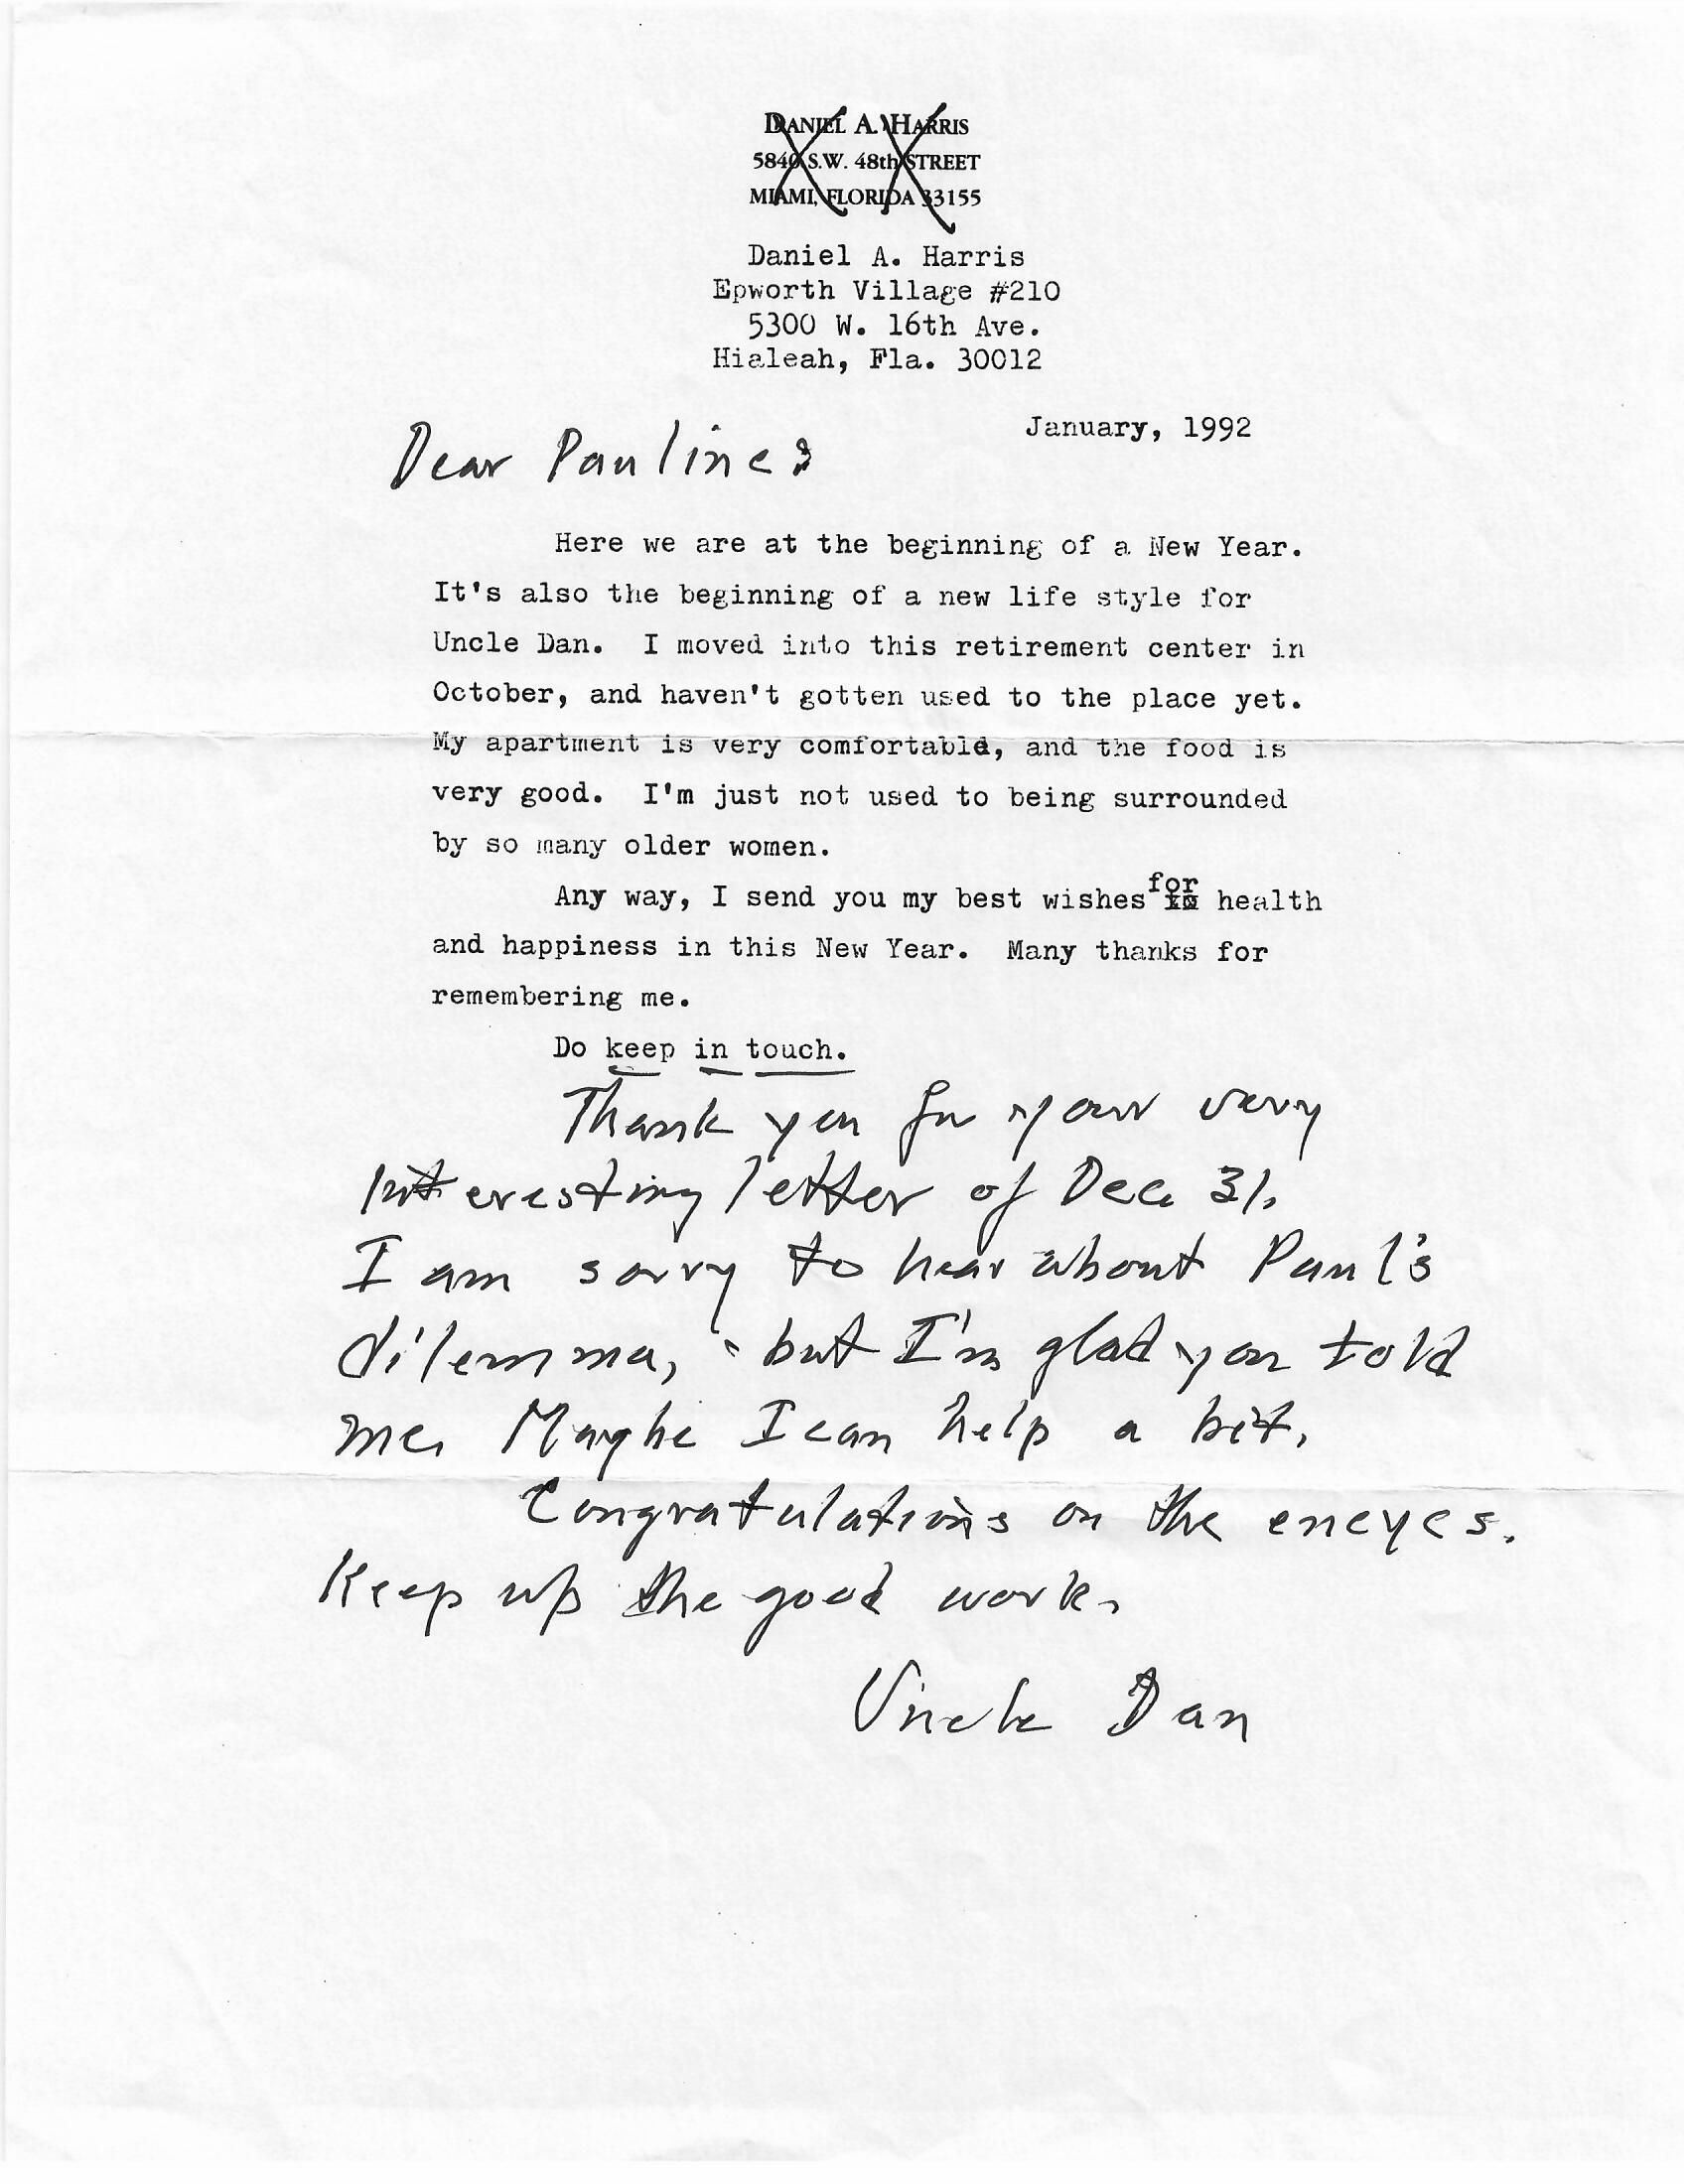 DANIEL A. HARRIS
5840 S.W. 48th STREET
MIAMI, FLORIDA 33155
Daniel A. Harris
Epworth Village #210
5300 W. 16th Ave.
Hialeah, Fla. 30012
January, 1992
Dear Pauline:
Here we are at the beginning of a New Year.
It's also the beginning of a new life style for
Uncle Dan. I moved into this retirement center in
October, and haven't gotten used to the place yet.
My apartment is very comfortable, and the food is
very good. I'm just not used to being surrounded
by so many older women.
Any way, I send you my best wishes for health
and happiness in this New Year. Many thanks for
remembering me.
Do keep in touch.
Thank you for your very
interesting letter of Dec. 31.
I am sorry to hear about Paul's
dilemma, but I'm glad you told
me. Maybe I can help a bit.
Congratulations on the
Keep up the good work.
Uncle Dan